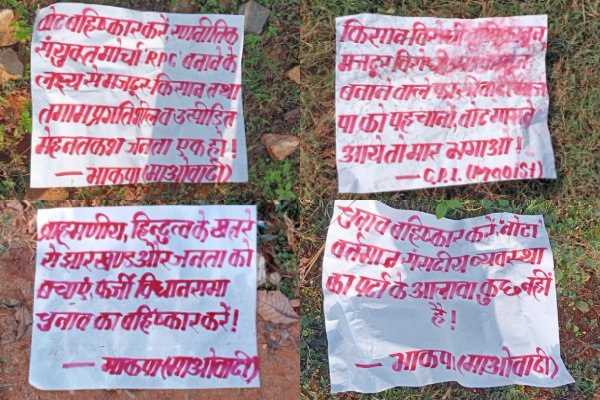 वोट बहिष्कार करें रणनीतिक
संयुक्त मोर्चा RPC बनाने के
लक्ष्य से मजदूर किसान तथा
तमाम प्रगतिशील व उत्पीड़ित
मेहनतकश जनता एक हो!
— भाकपा (माओवादी)
किसान विरोधी
मजदूर विरोधी
बनाने वाले फासीवादी भाज
पा को पहचानो, वोट मांगने
आये तो मार भगाओ!
— C.P.I. (Maoist)
ब्राह्मणीय, हिन्दुत्व के खतरे
से झारखण्ड और जनता को
बचाएं, फर्जी विधानसभा
चुनाव का बहिष्कार करें!
— भाकपा (माओवादी)
चुनाव बहिष्कार करें, नोटा
वर्तमान संसदीय व्यवस्था
का पर्दा के अलावा कुछ नहीं
है!
— भाकपा (माओवादी)